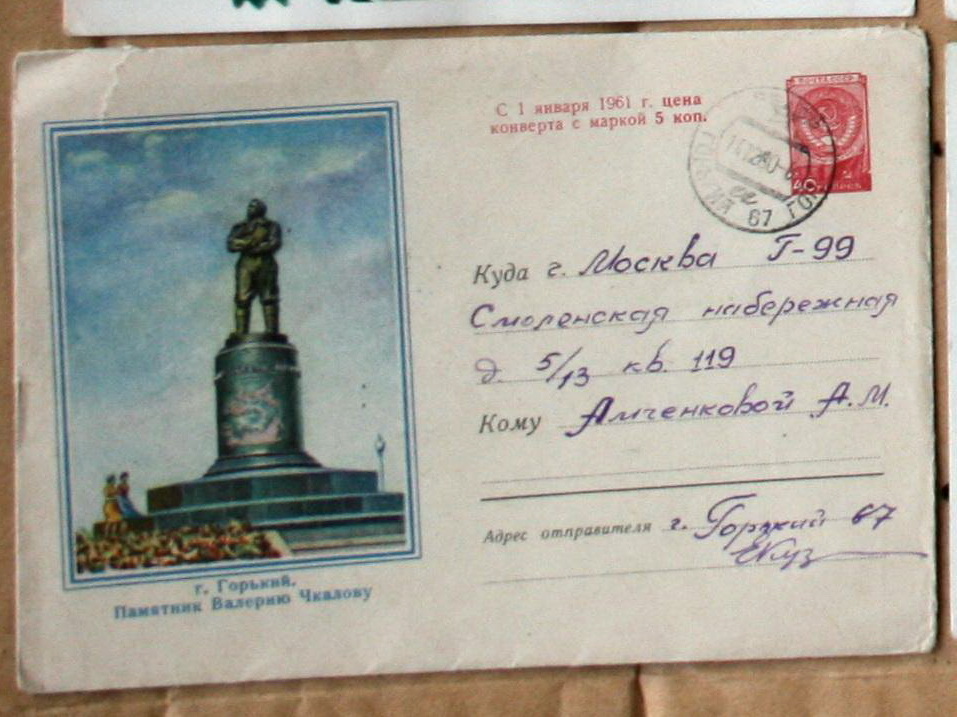 С 1 января 1961 г. цена
конверта с маркой 5 коп.
ПОЧТА СССР
40
67 ГОР
Куда г. Москва Г-99
Смоленская набережная
д. 5/13 кв. 119
Кому Амченковой А.М.
Адрес отправителя г. Горький 67
г. Горький.
Памятник Валерию Чкалову